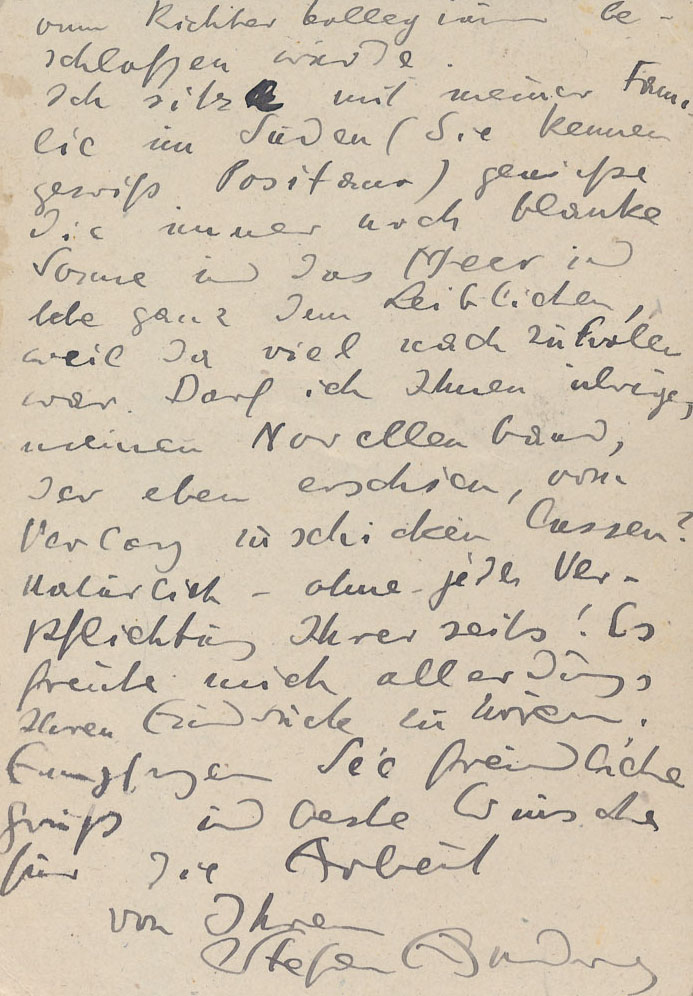 vom Richterkollegium be-
schlossen wurde.
Ich sitze mit meiner Fami-
lie im Süden (Sie kennen
gewiß Positano) genieße
die immer noch blanke
Sonne und das Meer und
lebe ganz dem Leiblichen,
weil da viel nachzuholen
war. Darf ich Ihnen übrigens
meinen Novellenband,
der eben erschien, vom
Verlag zuschicken lassen?
Natürlich – ohne jede Ver-
pflichtung Ihrerseits! Es
freute mich allerdings
Ihren Eindruck zu hören.
Empfangen Sie freundliche
Grüße und beste Wünsche
für die Arbeit
von Ihrem
Stefan